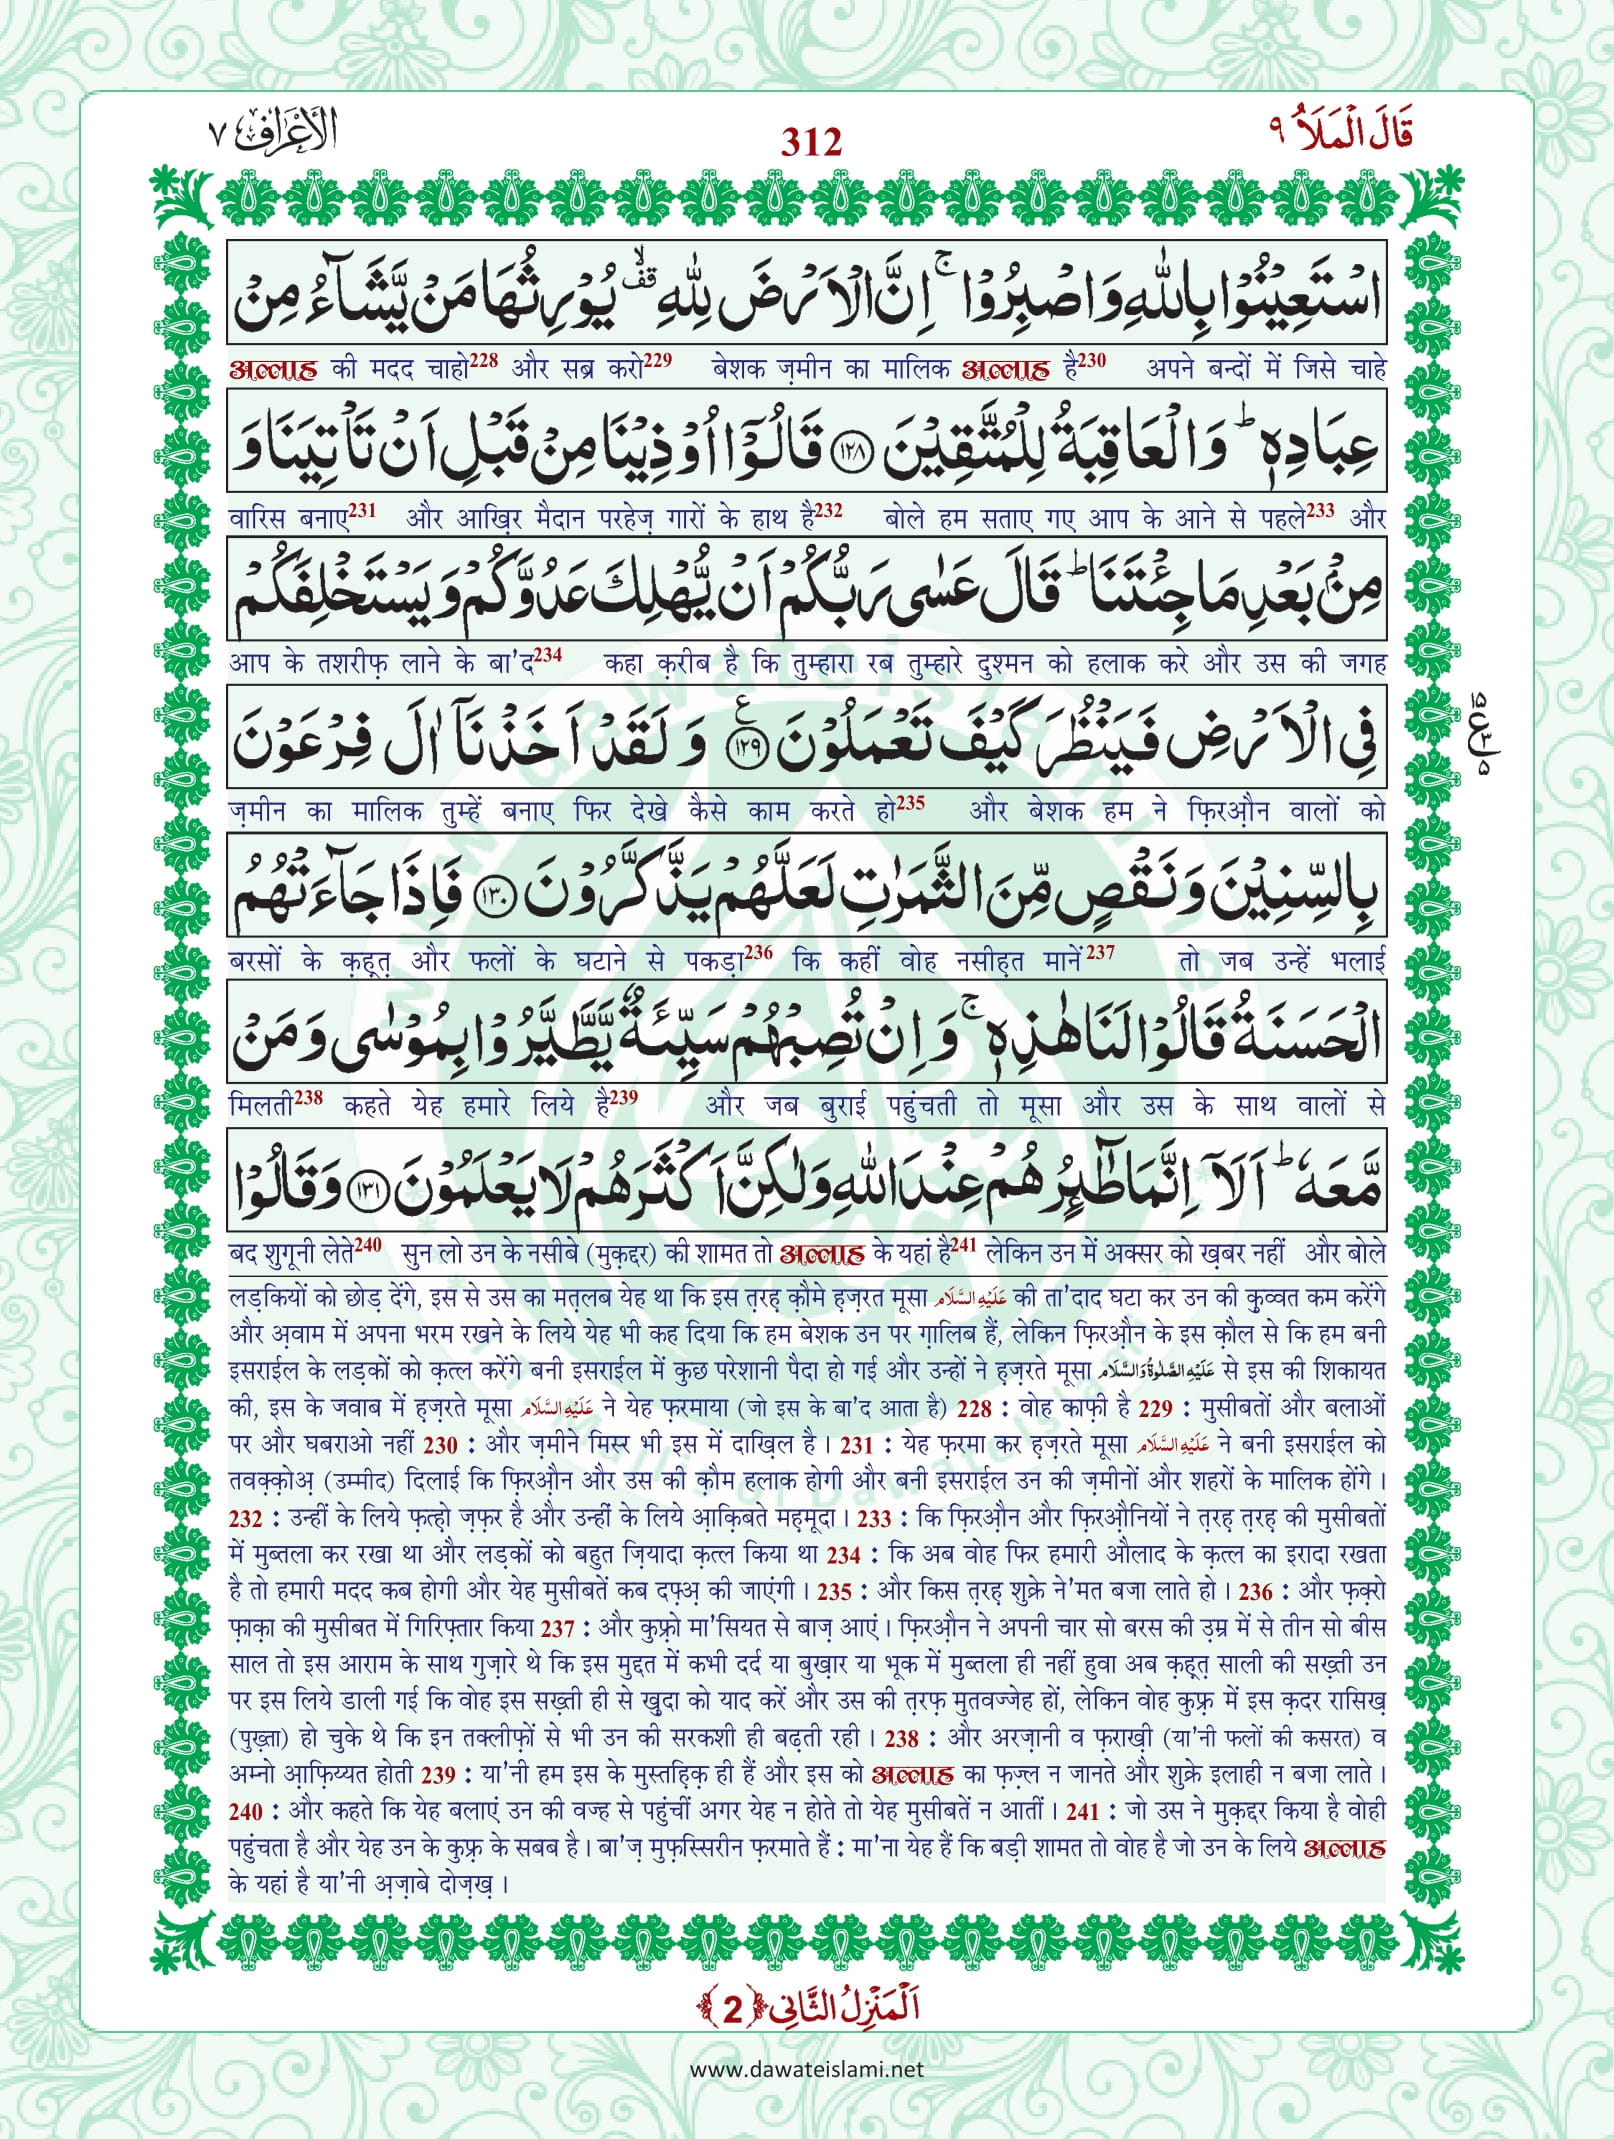 قَالَ الْمَلَاُ ٩
312
الْأَعْرَاف ٧
اسْتَعِيْنُوْا بِاللّٰهِ وَ اصْبِرُوْا ۚ اِنَّ الْاَرْضَ لِلّٰهِ ۙ قف یُوْرِثُهَا مَنْ یَّشَآءُ مِنْ
अल्लाह की मदद चाहो228 और सब्र करो229 बेशक ज़मीन का मालिक अल्लाह है230 अपने बन्दों में जिसे चाहे
عِبَادِهٖ ؕ وَ الْعَاقِبَةُ لِلْمُتَّقِیْنَ ﴿۱۲۸﴾ قَالُوْۤا اُوْذِیْنَا مِنْ قَبْلِ اَنْ تَاْتِیَنَا وَ
वारिस बनाए231 और आख़िर मैदान परहेज़ गारों के हाथ है232 बोले हम सताए गए आप के आने से पहले233 और
مِنْۢ بَعْدِ مَا جِئْتَنَا ؕ قَالَ عَسٰی رَبُّكُمْ اَنْ یُّهْلِكَ عَدُوَّكُمْ وَ یَسْتَخْلِفَكُمْ
आप के तशरीफ़ लाने के बा'द234 कहा क़रीब है कि तुम्हारा रब तुम्हारे दुश्मन को हलाक करे और उस की जगह
فِی الْاَرْضِ فَیَنْظُرَ كَیْفَ تَعْمَلُوْنَ ﴿۱۲۹﴾ ع وَ لَقَدْ اَخَذْنَاۤ اٰلَ فِرْعَوْنَ
ज़मीन का मालिक तुम्हें बनाए फिर देखे कैसे काम करते हो235 और बेशक हम ने फ़िरऔ़न वालों को
بِالسِّنِیْنَ وَ نَقْصٍ مِّنَ الثَّمَرٰتِ لَعَلَّهُمْ یَذَّكَّرُوْنَ ﴿۱۳۰﴾ فَاِذَا جَآءَتْهُمُ
बरसों के क़ह़त़ और फलों के घटाने से पकड़ा236 कि कहीं वोह नसीह़त मानें237 तो जब उन्हें भलाई
الْحَسَنَةُ قَالُوْا لَنَا هٰذِهٖ ۚ وَ اِنْ تُصِبْهُمْ سَیِّئَةٌ یَّطَّیَّرُوْا بِمُوْسٰی وَ مَنْ
मिलती238 कहते येह हमारे लिये है239 और जब बुराई पहुंचती तो मूसा और उस के साथ वालों से
مَّعَهٗ ؕ اَلَاۤ اِنَّمَا طٰٓىِٕرُهُمْ عِنْدَ اللّٰهِ وَ لٰكِنَّ اَكْثَرَهُمْ لَا یَعْلَمُوْنَ ﴿۱۳۱﴾ وَ قَالُوْا
बद शुगूनी लेते240 सुन लो उन के नसीबे (मुक़द्दर) की शामत तो अल्लाह के यहां है241 लेकिन उन में अक्सर को ख़बर नहीं और बोले
लड़कियों को छोड़ देंगे, इस से उस का मत़लब येह था कि इस त़रह़ क़ौमे ह़ज़रत मूसा عَلَيْهِ السَّلَام की ता'दाद घटा कर उन की क़ुव्वत कम करेंगे
और अ़वाम में अपना भरम रखने के लिये येह भी कह दिया कि हम बेशक उन पर ग़ालिब हैं, लेकिन फ़िरऔ़न के इस क़ौल से कि हम बनी
इसराईल के लड़कों को क़त्ल करेंगे बनी इसराईल में कुछ परेशानी पैदा हो गई और उन्हों ने ह़ज़रते मूसा عَلَيْهِ الصَّلٰوةُ وَالسَّلَام से इस की शिकायत
की, इस के जवाब में ह़ज़रते मूसा عَلَيْهِ السَّلَام ने येह फ़रमाया (जो इस के बा'द आता है) 228 : वोह काफ़ी है 229 : मुसीबतों और बलाओं
पर और घबराओ नहीं 230 : और ज़मीने मिस्र भी इस में दाख़िल है। 231 : येह फ़रमा कर ह़ज़रते मूसा عَلَيْهِ السَّلَام ने बनी इसराईल को
तवक़्क़ोअ़ (उम्मीद) दिलाई कि फ़िरऔ़न और उस की क़ौम हलाक होगी और बनी इसराईल उन की ज़मीनों और शहरों के मालिक होंगे।
232 : उन्हीं के लिये फ़त्ह़ो ज़फ़र है और उन्हीं के लिये आ़क़िबते मह़मूदा। 233 : कि फ़िरऔ़न और फ़िरऔ़नियों ने त़रह़ त़रह़ की मुसीबतों
में मुब्तला कर रखा था और लड़कों को बहुत ज़ियादा क़त्ल किया था 234 : कि अब वोह फिर हमारी औलाद के क़त्ल का इरादा रखता
है तो हमारी मदद कब होगी और येह मुसीबतें कब दफ़्अ़ की जाएंगी। 235 : और किस त़रह़ शुक्रे ने'मत बजा लाते हो। 236 : और फ़क़्रो
फ़ाक़ा की मुसीबत में गिरिफ़्तार किया 237 : और कुफ़्रो मा'सियत से बाज़ आएं। फ़िरऔ़न ने अपनी चार सो बरस की उ़म्र में से तीन सो बीस
साल तो इस आराम के साथ गुज़ारे थे कि इस मुद्दत में कभी दर्द या बुख़ार या भूक में मुब्तला ही नहीं हुवा अब क़ह़त़ साली की सख़्ती उन
पर इस लिये डाली गई कि वोह इस सख़्ती ही से ख़ुदा को याद करें और उस की त़रफ़ मुतवज्जेह हों, लेकिन वोह कुफ़्र में इस क़दर रासिख़
(पुख़्ता) हो चुके थे कि इन तक्लीफ़ों से भी उन की सरकशी ही बढ़ती रही। 238 : और अरज़ानी व फ़राख़ी (या'नी फलों की कसरत) व
अम्नो आ़फ़िय्यत होती 239 : या'नी हम इस के मुस्तह़िक़ ही हैं और इस को अल्लाह का फ़ज़्ल न जानते और शुक्रे इलाही न बजा लाते।
240 : और कहते कि येह बलाएं उन की वज्ह से पहुंचीं अगर येह न होते तो येह मुसीबतें न आतीं। 241 : जो उस ने मुक़द्दर किया है वोही
पहुंचता है और येह उन के कुफ़्र के सबब है। बा'ज़ मुफ़स्सिरीन फ़रमाते हैं : मा'ना येह हैं कि बड़ी शामत तो वोह है जो उन के लिये अल्लाह
के यहां है या'नी अ़ज़ाबे दोज़ख़।
اَلْمَنْزِلُ الثَّانِي ﴿2﴾
www.dawateislami.net